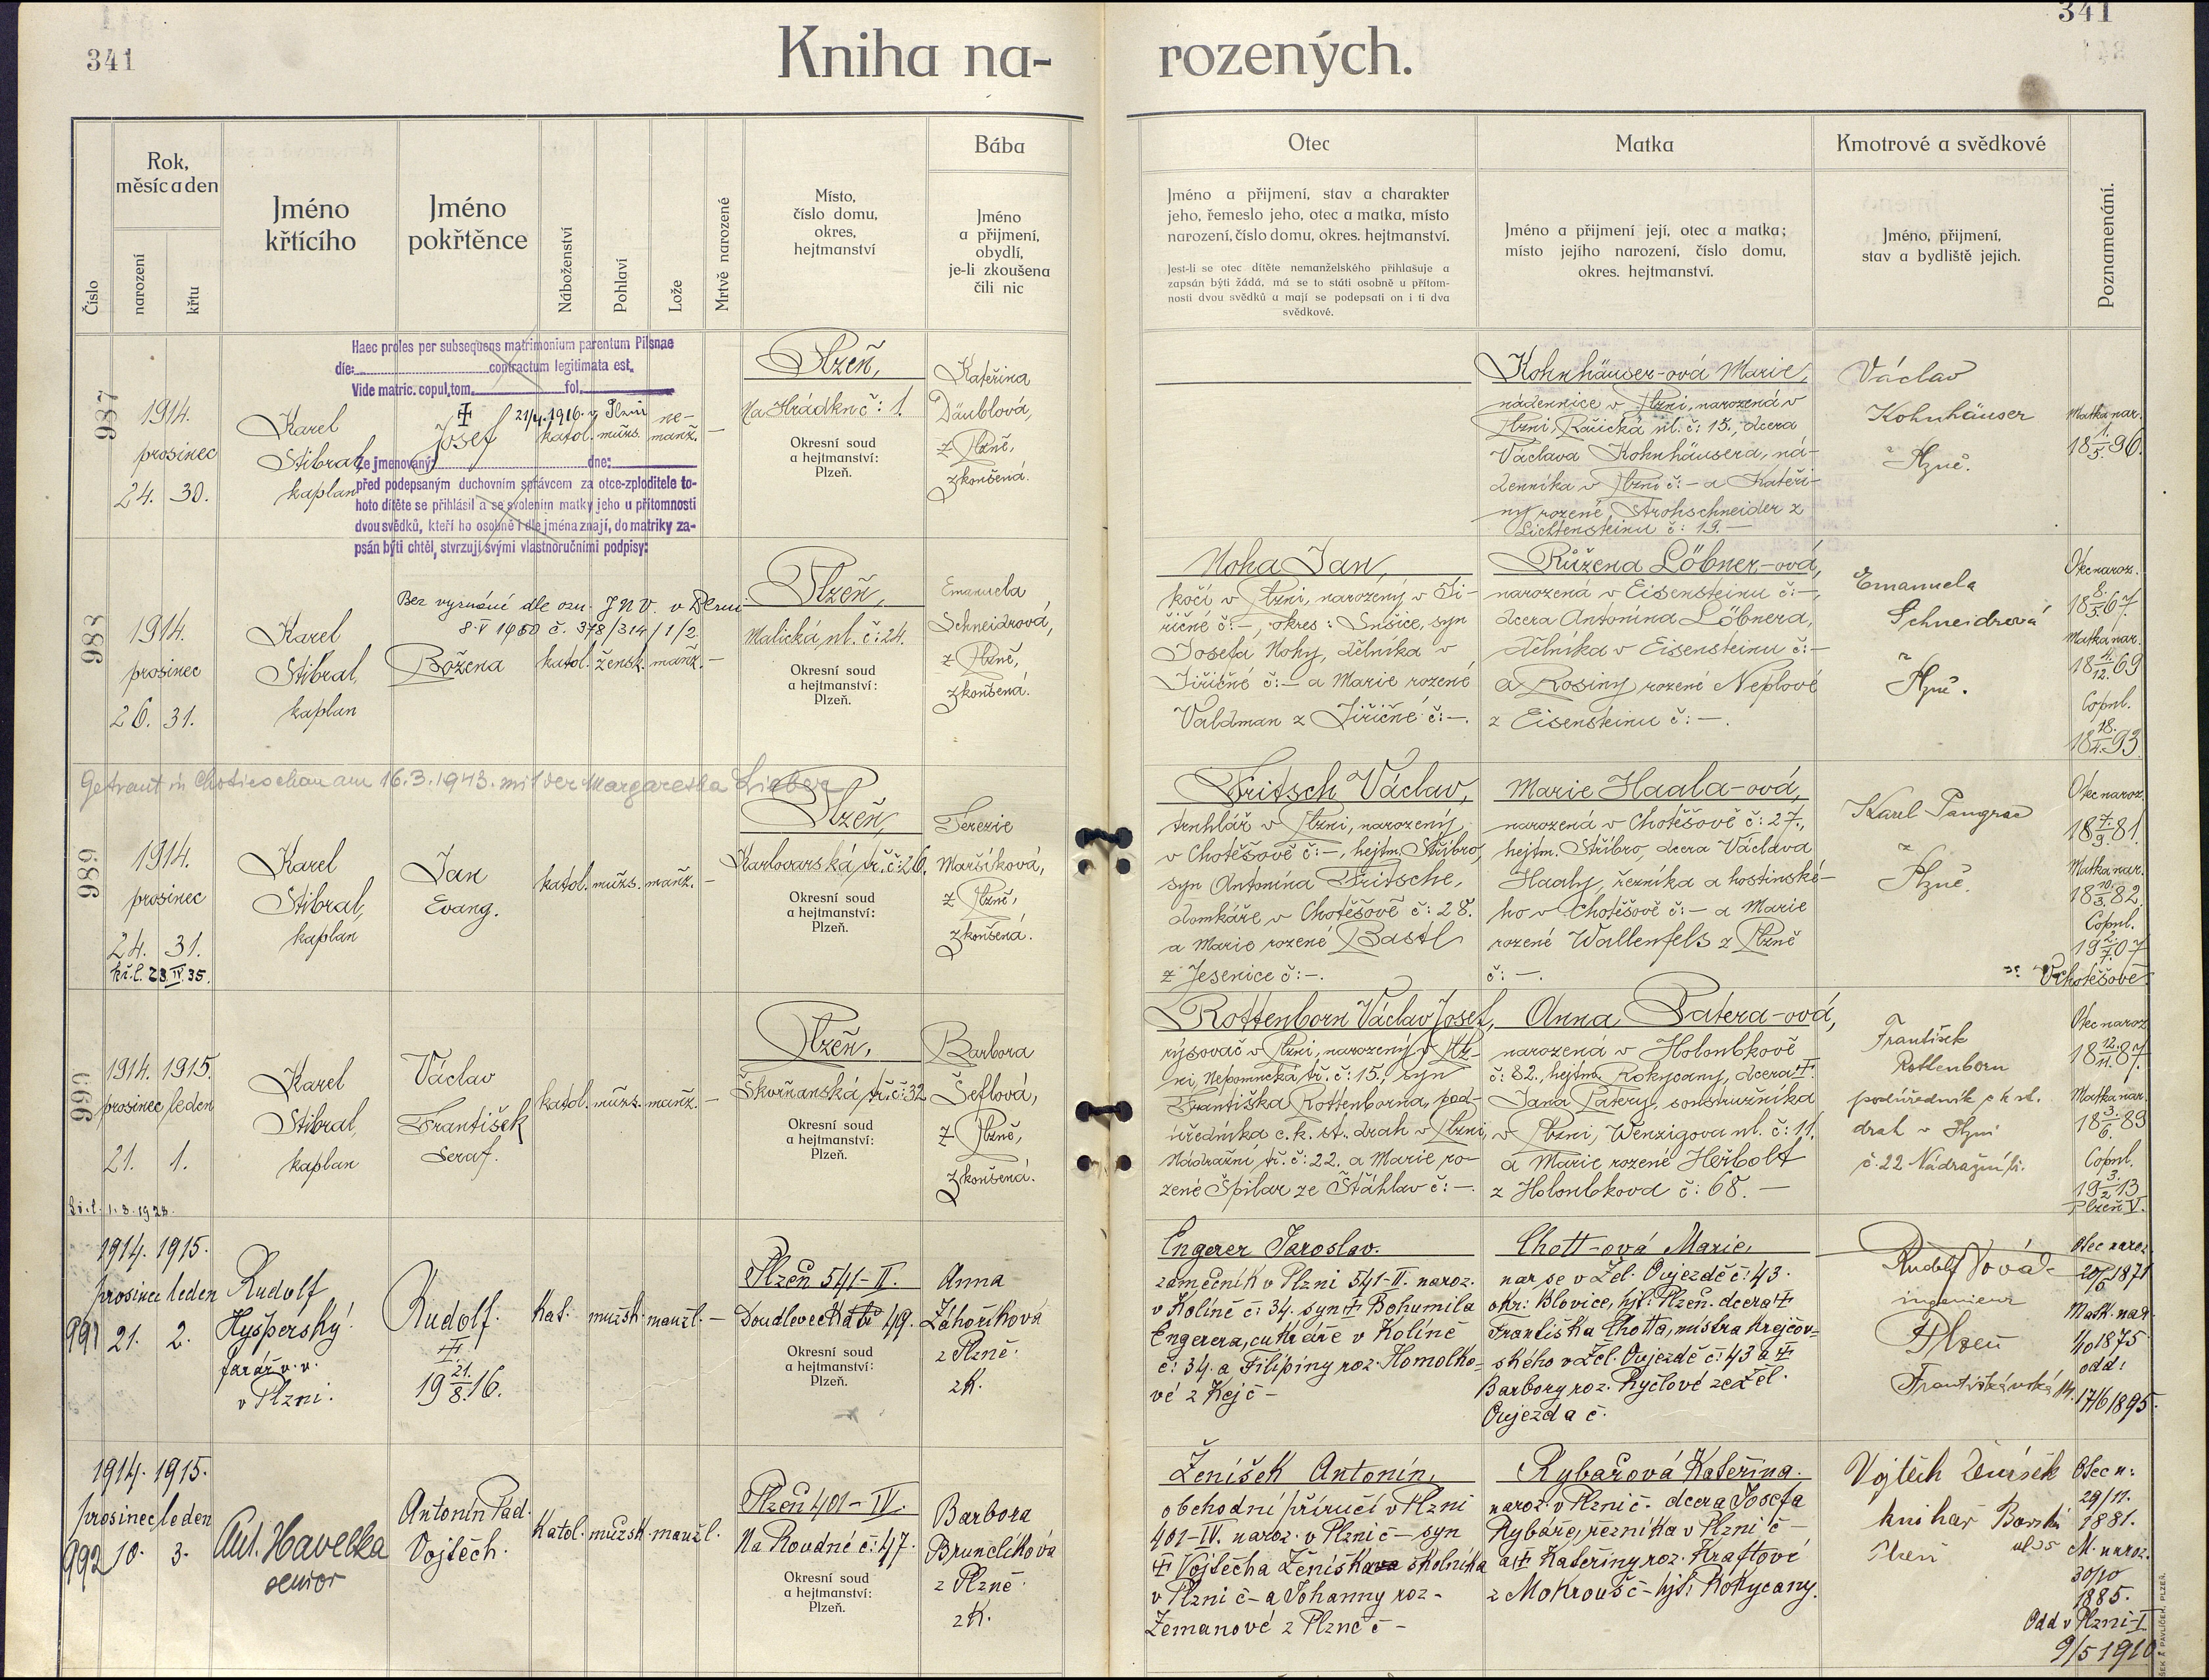 341
341
Kniha na-
rozených.
Číslo
Rok,
měsíc a den
narození
křtu
Jméno
křtícího
Jméno
pokřtěnce
Náboženství
Pohlaví
Lože
Mrtvě narozené
Místo,
číslo domu,
okres,
hejtmanství
Bába
Jméno
a přijmení,
obydlí,
je-li zkoušena
čili nic
Otec
Jméno a přijmení, stav a charakter
jeho, řemeslo jeho, otec a matka, místo
narození, číslo domu, okres. hejtmanství.
Jest-li se otec dítěte nemanželského přihlašuje a
zapsán býti žádá, má se to státi osobně u přítom-
nosti dvou svědků a mají se podepsati on i ti dva
svědkové.
Matka
Jméno a přijmení její, otec a matka;
místo jejího narození, číslo domu,
okres. hejtmanství.
Kmotrové a svědkové
Jméno, přijmení,
stav a bydliště jejich.
Poznamenání.
987
1914.
prosinec
24. 30.
Karel
Stibral,
kaplan
Haec proles per subsequens matrimonium parentum Pilsnae
die: contractum legitimata est.
Vide matric. copul. tom. fol.
✝ 21/4. 1916. v Plzni
Josef
katol. mužs. ne-
manž. —
Že jmenovaný: dne:
před podepsaným duchovním správcem za otce-zploditele to-
hoto dítěte se přihlásil a se svolením matky jeho u přítomnosti
dvou svědků, kteří ho osobně i dle jména znají, do matriky za-
psán býti chtěl, stvrzují svými vlastnoručními podpisy:
Plzeň,
Na Hrádku č: 1.
Okresní soud
a hejtmanství:
Plzeň.
Kateřina
Däublová,
z Plzně,
zkoušená.
Kohnhäuser-ová Marie,
nádennice v Plzni, narozená v
Plzni, Račická ul. č: 13., dcera
Václava Kohnhäusera, ná-
denníka v Plzni č: — a Kateři-
ny rozené Strohschneider z
Lichtensteinu č: 19. —
Václav
Kohnhäuser
z
Plzně.
Matka nar.
18 1./5. 96.
988
1914.
prosinec
26. 31.
Karel
Stibral,
kaplan
Bez vyznání dle ozn. JNV. v Plzni
8. V 1950 č. 378/314/1/2
Božena
katol. žensk. manž. —
Plzeň,
Malická ul. č: 24.
Okresní soud
a hejtmanství:
Plzeň.
Emanuela
Schneidrová,
z Plzně,
zkoušená.
Noha Jan,
kočí v Plzni, narozený v Ji-
řičné č: —, okres: Sušice, syn
Josefa Nohy, dělníka v
Jiřičné č: — a Marie rozené
Valdman z Jiřičné č: —.
Růžena Löbner-ová,
narozená v Eisensteinu č: —,
dcera Antonína Löbnera,
dělníka v Eisensteinu č: —
a Rosiny rozené Neplové
z Eisensteinu č: —.
Emanuela
Schneidrová
z
Plzně.
Otec naroz.
18 8./5. 67
Matka nar.
18 4./12. 69
Copul.
18 18./4. 93
Getraut in Chotieschau am 16.3.1943. mit der Margaretha Lieber
989
1914.
prosinec
24. 31.
kř. l. 23. IV. 35.
Karel
Stibral,
kaplan
Jan
Evang.
katol. mužs. manž. —
Plzeň,
Karlovarská tř. č: 26.
Okresní soud
a hejtmanství:
Plzeň.
Terezie
Maršíková,
z Plzně,
zkoušená.
Fritsch Václav,
truhlář v Plzni, narozený
v Chotěšově č: —, hejtm. Stříbro,
syn Antonína Fritsche,
domkáře v Chotěšově č: 28.
a Marie rozené Bastl
z Jesenice č: —.
Marie Haala-ová,
narozená v Chotěšově č: 27.,
hejtm. Stříbro, dcera Václava
Haaly, řezníka a hostinské-
ho v Chotěšově č: — a Marie
rozené Wallenfels z Plzně
č: —.
Karel Pangrac
z
Plzně.
Otec naroz.
18 7./9. 81.
Matka nar.
18 10./3. 82.
Copul.
19 2./7. 07
V Chotěšově
990
1914. 1915.
prosinec leden
21. 1.
kř. l. 1. 3. 1928.
Karel
Stibral,
kaplan
Václav
František
Seraf.
katol. mužs. manž. —
Plzeň,
Skvrňanská tř. č: 32
Okresní soud
a hejtmanství:
Plzeň.
Barbora
Šeflová,
z Plzně,
zkoušená.
Rottenborn Václav Josef,
rýsovač v Plzni, narozený v Plz-
ni, Nepomucká tř. č: 15., syn
Františka Rottenborna, pod-
úředníka c. k. st. drah v Plzni,
Nádražní tř. č: 22. a Marie ro-
zené Špilar ze Šťáhlav č: —.
Anna Patera-ová,
narozená v Holoubkově
č: 82., hejtm. Rokycany, dcera ✝
Jana Patery, soustružníka
v Plzni, Wenzigova ul. č: 11.
a Marie rozené Heřbolt
z Holoubkova č: 68. —
František
Rottenborn
podúředník c k st.
drah v Plzni
č. 22 Nádražní tř.
Otec naroz.
18 12./11. 87.
Matka nar.
18 3./6. 89
Copul.
19 3./2. 13
Plzeň V.
991
1914. 1915.
prosinec leden
21. 2.
Rudolf
Hyšperský
farář v. v.
v Plzni.
Rudolf.
✝
19 21./8. 16.
Kat. mužsk. manžl. —
Plzeň 541-II.
Doudlevecká tř 49.
Okresní soud
a hejtmanství:
Plzeň.
Anna
Záhoříková
z Plzně.
zk.
Engerer Jaroslav.
zámečník v Plzni 541-II. naroz.
v Kolíně č: 34. syn ✝ Bohumila
Engerera, cukráře v Kolíně
č: 34. a Filipiny roz. Homolko-
vé z Kejč —
Chott-ová Marie,
nar se v Žel. Oujezdě č: 43.
okr: Blovice, hjt: Plzeň. dcera ✝
Františka Chotta, mistra krejčov-
ského v Žel. Oujezdě č: 43 a ✝
Barbory roz. Ryčlové ze Žel.
Oujezda č.
Rudolf Novák
ingenieur
Plzeň
Františkánská 14.
Otec naroz.
20/5 1871
Matk. nar.
1/10 1875
odd:
17/6 1895.
992
1914. 1915.
prosinec leden
10. 3.
Ant. Havelka
senior
Antonín Pad.
Vojtěch.
Katol. mužsk. manžl.
Plzeň 401-IV.
Na Roudné č: 47.
Okresní soud
a hejtmanství:
Plzeň.
Barbora
Brunclíková
z Plzně.
zk.
Ženíšek Antonín,
obchodní příručí v Plzni
401-IV. naroz. v Plzni č — syn
✝ Vojtěcha Ženíška školníka
v Plzni č — a Johanny roz.
Zemanové z Plzně č —
Rybářová Kateřina.
naroz. v Plzni č. dcera Josefa
Rybáře, řezníka v Plzni č —
a ✝ Kateřiny roz. Kraftové
z Mokrouš č — hjt: Rokycany.
Vojtěch Ženíšek
knihař Borská
Plzeň ul 35
Otec n:
29/11.
1881.
M. naroz.
30/10
1885.
Odd v Plzni-I
9/5 1910